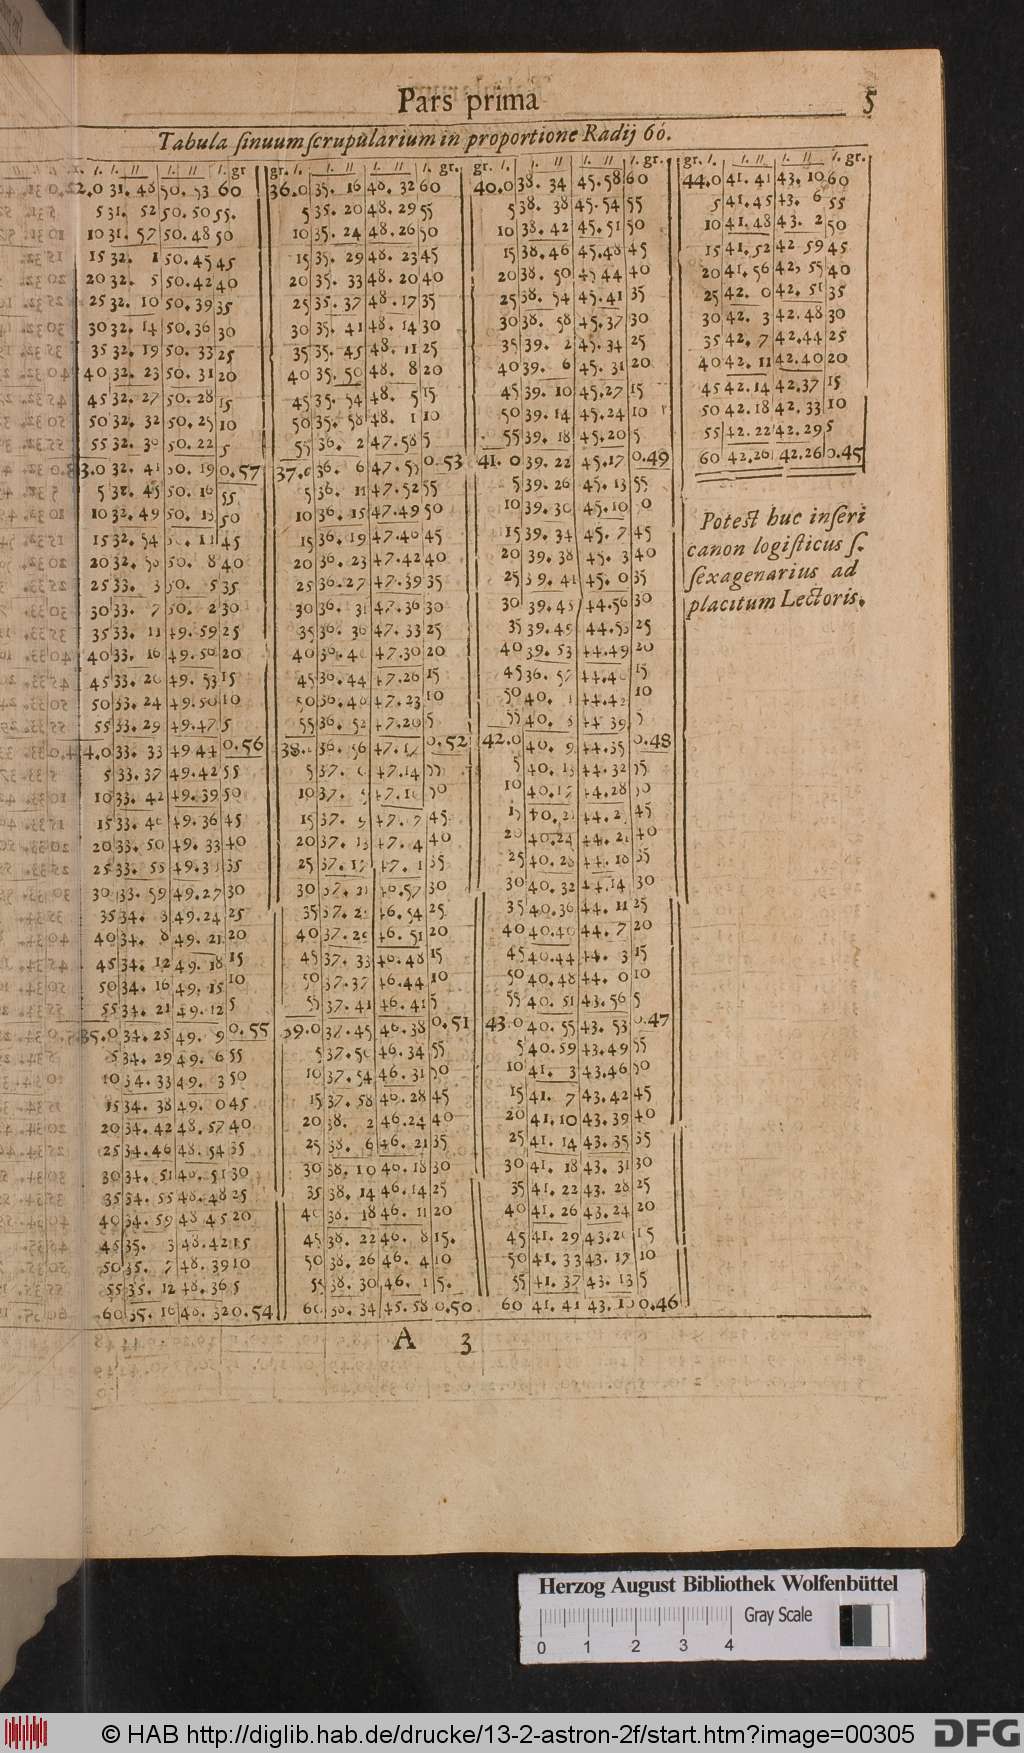 Pars prima 5
Tabula sinuum scrupularium in proportione Radij 60.
I. I. II I. II I. gr
2.0 31. 48 50. 53 60
5 31. 52 50. 50 55.
10 31. 57 50. 48 50
15 32. 1 50. 45 45
20 32. 5 50. 42 40
25 32. 10 50. 39 35
30 32. 14 50. 36 30
35 32. 19 50. 33 25
40 32. 23 50. 31 20
45 32. 27 50. 28 15
50 32. 32 50. 25 10
55 32. 36 50. 22 5
3.0 32. 41 50. 19 0.57
5 32. 45 50. 16 55
10 32. 49 50. 13 50
15 32. 54 11 45
20 32. 8 40
25 33. 3 50. 5 35
30 33. 7 50. 2 30
35 33. 11 49. 59 25
40 33. 16 49. 20
45 33. 20 49. 53 15
50 33. 24 49. 50 10
55 33. 29 49. 47 5
4.0 33. 33 49 44 0.56
5 33. 37 49. 42 55
10 33. 42 49. 39 50
15 33. 49. 36 45
20 33. 50 49. 33 40
25 33. 55 49. 35
30 33. 59 49. 27 30
35 34. 3 49. 24 25
40 34. 8 49. 21 20
45 34. 12 49. 18 15
50 34. 16 49. 15 10
55 34. 21 49. 12 5
35.0 34. 25 49. 9 0.55
5 34. 29 49. 6 55
10 34. 33 49. 3 50
15 34. 38 49. 0 45
20 34. 42 48. 57 40
25 34. 46 48. 54 35
30 34. 51 48. 51 30
35 34. 55 48. 48 25
40 34. 59 48 45 20
45 35. 3 48. 42 15
50 35. 7 48. 39 10
55 35. 12 48. 36 5
60 35. 16 48. 32 0.54
gr. I. I. II I. II I. gr.
36.0 35. 16 48. 32 60
5 35. 20 48. 29 55
10 35. 24 48. 26 50
15 35. 29 48. 23 45
20 35. 33 48. 20 40
25 35. 37 48. 17 35
30 35. 41 48. 14 30
35 35. 45 48. 11 25
40 35. 50 48. 8 20
45 35. 54 48. 5 15
50 35. 58 48. 1 10
55 36. 2 47. 58 5
37.0 36. 6 47. 55 0.53
5 36. 11 47. 52 55
10 36. 15 47. 49 50
15 36. 19 47. 46 45
20 36. 23 47. 42 40
25 36. 27 47. 39 35
30 36. 31 47. 36 30
35 36. 36 47. 33 25
40 36. 40 47. 30 20
45 36. 44 47. 26 15
50 36. 48 47. 23 10
55 36. 52 47. 20 5
38. 36. 56 47. 17 0.52
5 37. 47. 14 55
10 37. 5 47. 10 50
15 37. 9 47. 7 45
20 37. 13 47. 4 40
25 37. 17 47. 1 35
30 37. 21 46. 57 30
35 37. 46. 54 25
40 37. 29 46. 51 20
45 37. 33 46. 48 15
50 37. 37 46. 44 10
55 37. 41 46. 41 5
39.0 37. 45 46. 38 0.51
5 37. 50 46. 34 55
10 37. 54 46. 31 50
15 37. 58 46. 28 45
20 38. 2 46. 24 40
25 38. 6 46. 21 35
30 38. 10 46. 18 30
35 38. 14 46. 14 25
40 38. 18 46. 11 20
45 38. 22 46. 8 15.
50 38. 26 46. 4 10
55 38. 30 46. 1 5.
60 38. 34 45. 58 0.50
gr. I. I. II I. II I. gr.
40.0 38. 34 45. 58 60
5 38. 38 45. 54 55
10 38. 42 45. 51 50
15 38. 46 45. 48 45
20 38. 50 45 44 40
25 38. 54 45. 41 35
30 38. 58 45. 37 30
35 39. 2 45. 34 25
40 39. 6 45. 31 20
45 39. 10 45. 27 15
50 39. 14 45. 24 10
55 39. 18 45. 20 5
41. 0 39. 22 45. 17 0.49
5 39. 26 45. 13 55
10 39. 30 45. 10 0
15 39. 34 45. 7 45
20 39. 38 45. 3 40
25 39. 41 45. 0 35
30 39. 45 44. 56 30
35 39. 49 44. 53 25
40 39. 53 44. 49 20
45 36. 57 44. 46 15
50 40. 1 44. 42 10
55 40. 5 44 39. 5
42.0 40. 9 44. 35 0.48
5 40. 13 44. 32 55
10 40. 17 44. 28 50
15 40. 21 44. 2 45
20 40. 24 44. 21 40
25 40. 28 44. 18 35
30 40. 32 44. 14 30
35 40. 36 44. 11 25
40 40. 40 44. 7 20
45 40. 44 44. 3 15
50 40. 48 44. 0 10
55 40. 51 43. 56 5
43.0 40. 55 43. 53 0.47
5 40. 59 43. 49 55
10 41. 3 43. 46 50
15 41. 7 43. 42 45
20 41. 10 43. 39 40
25 41. 14 43. 35 35
30 41. 18 43. 31 30
35 41. 22 43. 28 25
40 41. 26 43. 24 20
45 41. 29 43. 20 15
50 41. 33 43. 17 10
55 41. 37 43. 13 5
60 41. 41 43. 10 0.46
gr. I. I. II I. II I. gr.
44.0 41. 41 43. 10 60
5 41. 45 43. 6 55
10 41. 48 43. 2 50
15 41. 52 42 59 45
20 41. 56 42. 55 40
25 42. 0 42. 51 35
30 42. 3 42. 48 30
35 42. 7 42. 44 25
40 42. 11 42. 40 20
45 42. 14 42. 37 15
50 42. 18 42. 33 10
55 42. 22 42. 29 5
60 42. 26 42. 26 0.45
Potest huc inseri
canon logisticus s.
sexagenarius ad
placitum Lectoris.
A 3
Herzog August Bibliothek Wolfenbüttel
Gray Scale
0 1 2 3 4
© HAB http://diglib.hab.de/drucke/13-2-astron-2f/start.htm?image=00305
DFG